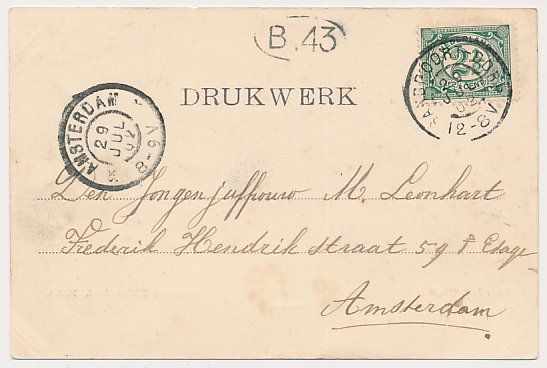 B.43
DRUKWERK
AMSTERDAM
29
JUL
02
6-8V
2½
12-8V
Den Jongenjuffrouw M. Leonhart
Frederik Hendrik straat 59 I Etage
Amsterdam